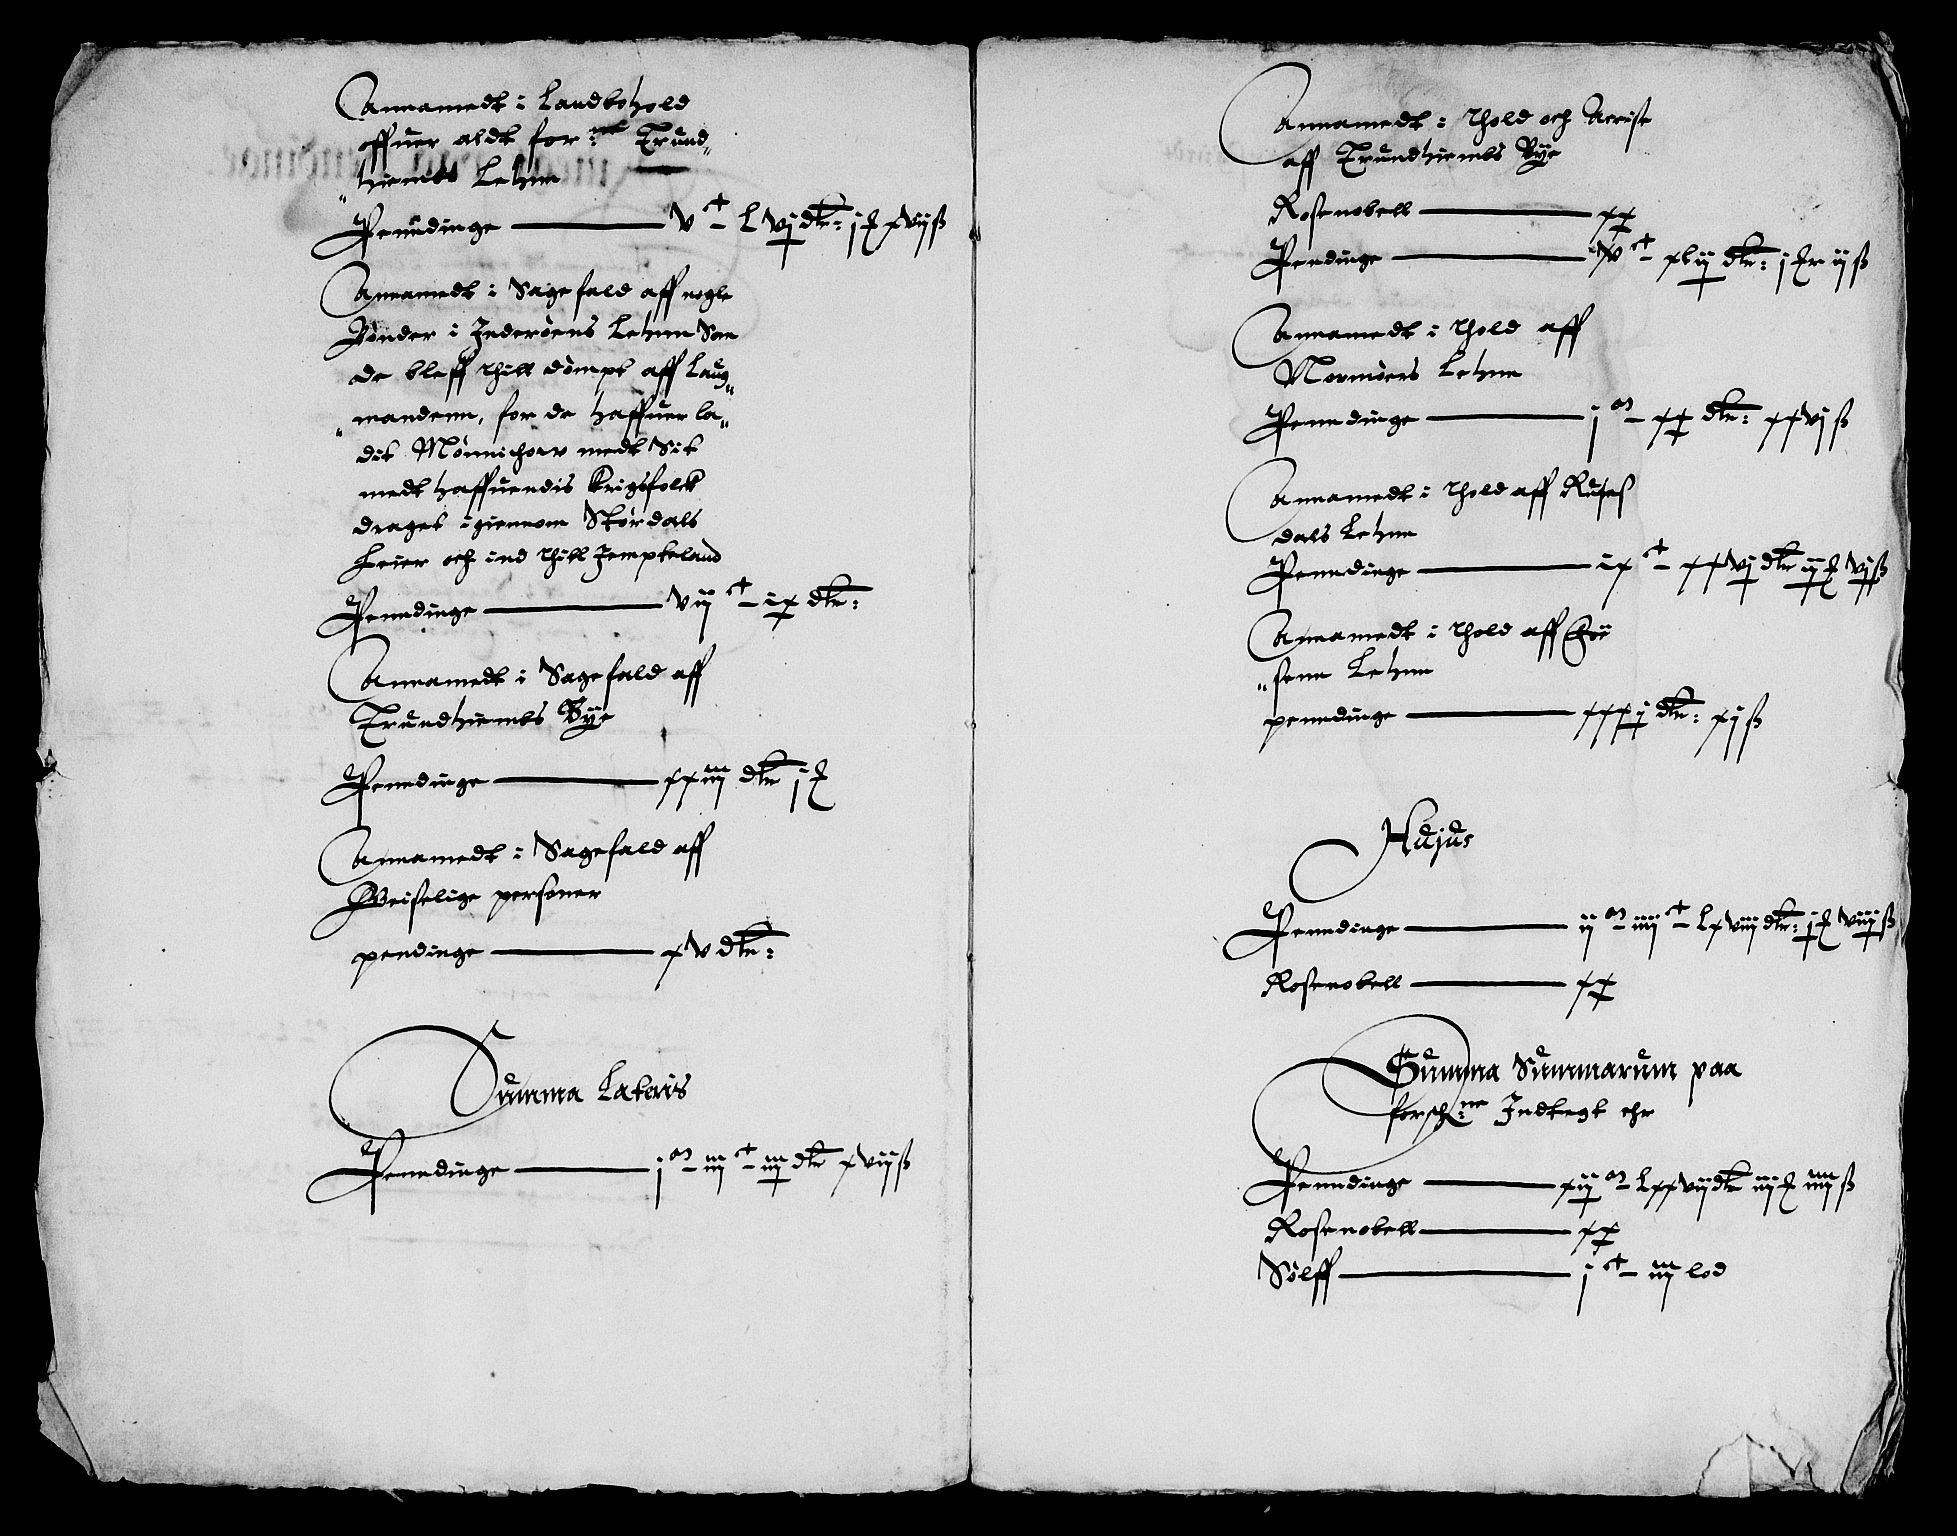 Annamedt i Landbohold
offuer aldt for:ne Trund„
„hiembs Lehnn
Penndinge — v c L vj dlr: j ƶ xvij ß
Annamedt i Sagefald aff nogle
Bønder i Inderøens Lehnn Som
de bleff thill dømpt aff Laug„
„mandenn, for de haffuer la„
dit Mønnichou medt Sit
medt haffuendis Krigsfolck
draget igiennom Størdals
Leier och ind thill Jempteland
Penndinge — vij c ix dlr:
Annamedt i Sagefald aff
Trundhiembs Bÿe
Penndinge — xxiiij dlr j ƶ
Annamedt i Sagefald aff
Geistlige personer
pendinge — xv dlr:
Summa Lateris
Penndinge — j m iiij c iiij dlr xvij ß
Annamedt i thold och Accise
aff Trundhiembs Bÿe
Rosenobell — xx
Pendinge — iv c xlij dlr: j ƶr ij ß
Annamedt i thold aff
Normøers Lehnn
Penndinge — j m xx dlr: xxvj ß
Annamedt i thold aff
dals Lehnn
Penndinge — ix c xxvj dlr ij ƶ vj ß
Annamedt i thold aff Foe
„senn Lehnn
penndinge — xxxj dlr: xij ß
Hujus
Penndinge — ij m iiij c Lxviij dlr: j ƶ viij ß
Rosenobell — xx
Summa Summarum paa
forsch:ne Indtegt ehr
Penndinge — xij m Lxxvij dlr iij ƶ ß
Rosenobell — xx
Sølff — j c iiij lod